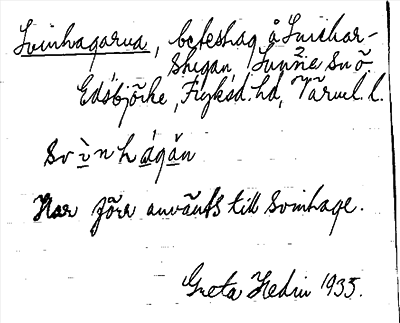 Svinhagarna, beteshag å Snickar-
stugan, Sunne sn ö.
Edsbjörke, Fryksd. hd, Värml. l.
Svìnhágăn
Har förr använts till svinhage.
Greta Hedin 1935.